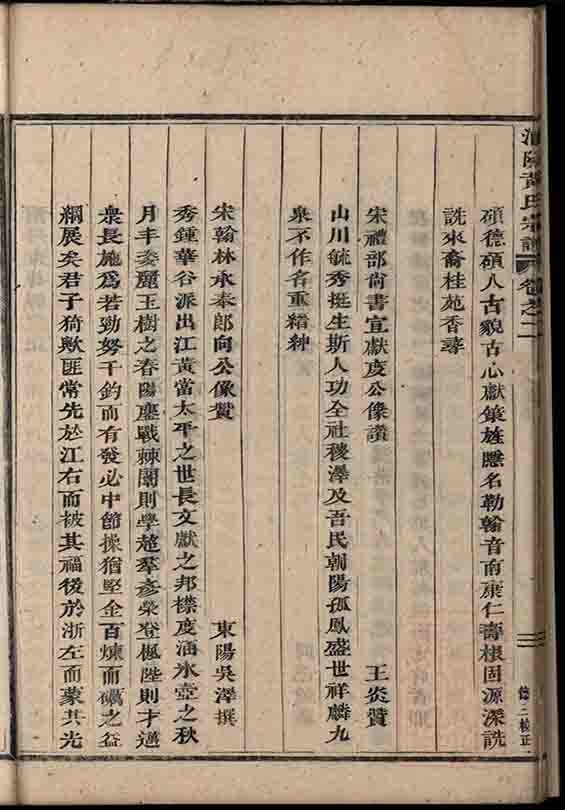 浦陽黃氏宗譜 卷之二
碩德碩人古貌古心獻策旌應名勒翰音南康仁壽根固源深詵
詵來裔桂苑香尋
宋禮部尚書宣獻度公像讚
王炎贊
山川毓秀挺生斯人功全社稷澤及吾民朝陽孤鳳盛世祥麟九
泉不作名重縉紳
宋翰林承奉郎向公像贊
東陽吳澤撰
秀鍾華谷派出江黃當太平之世長文獻之邦襟度涵氷壺之秋
月丰姿麗玉樹之春陽鏖戰棘闈則學超羣彥榮登楓陛則才邁
衆長施爲若勁弩千鈞而有發必中節操猶堅金百煉而礪之益
綱展矣君子猗歟匪常先於江右而被其福後於浙左而蒙其光
德三校正